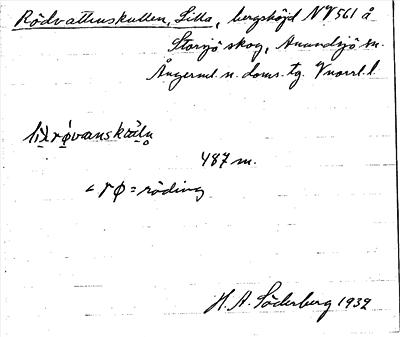 Rödvattenskullen, Lilla, bergshöjd NV 561 å
Storsjö skog, Anundsjö sn.
Ångerml. n. doms. tg. Vnorrl. l.
487 m.
< rø = röding
H. A. Söderberg 1932